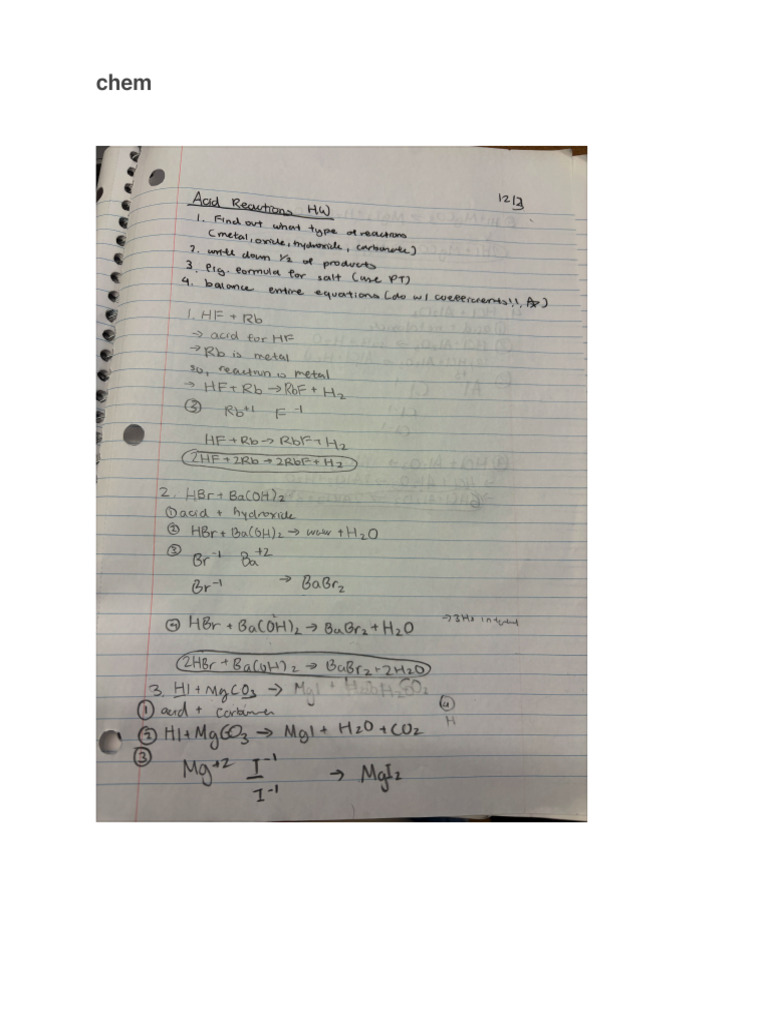 chem
Acid Reactions HW
12/3
1. Find out what type of reactions
(metal, oxide, hydroxide, carbonate)
2. write down 1/2 of products
3. Fig. formula for salt (use PT)
4. balance entire equations (do w/ coefficients!!,
1. HF + Rb
→ acid for HF
→ Rb is metal
so, reaction is metal
→ HF + Rb → RbF + H₂
③ Rb⁺¹ F⁻¹
HF + Rb → RbF + H₂
2HF + 2Rb → 2RbF + H₂
2. HBr + Ba(OH)₂
① acid + hydroxide
② HBr + Ba(OH)₂ → + H₂O
③ Br⁻¹ Ba⁺²
Br⁻¹ → BaBr₂
④ HBr + Ba(OH)₂ → BaBr₂ + H₂O
→ 3 H's in total
2HBr + Ba(OH)₂ → BaBr₂ + 2H₂O
3. HI + MgCO₃ → MgI +
① acid +
④
H
② HI + MgCO₃ → MgI + H₂O + CO₂
③
Mg⁺² I⁻¹ → MgI₂
I⁻¹